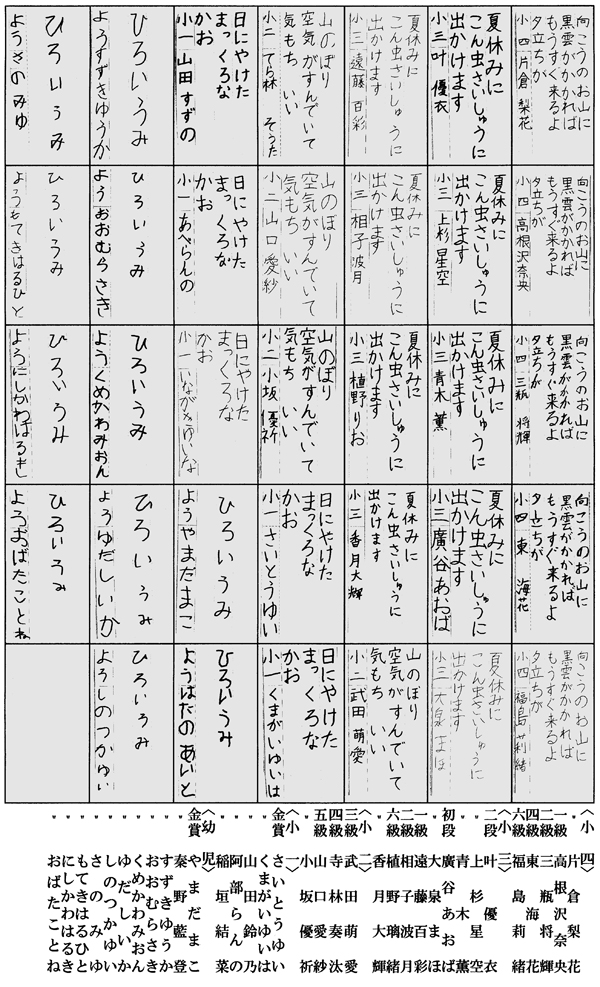 向こうのお山に
黒雲がかかれば
もうすぐ来るよ
夕立ちが
小四 片倉 梨花
向こうのお山に
黒雲がかかれば
もうすぐ来るよ
夕立ちが
小四 高根沢奈央
向こうのお山に
黒雲がかかれば
もうすぐ来るよ
夕立ちが
小四 三瓶 将輝
向こうのお山に
黒雲がかかれば
もうすぐ来るよ
夕立ちが
小四 東 海花
向こうのお山に
黒雲がかかれば
もうすぐ来るよ
夕立ちが
小四 福島 莉緒
夏休みに
こん虫さいしゅうに
出かけます
小三 叶 優衣
夏休みに
こん虫さいしゅうに
出かけます
小三 上杉 星空
夏休みに
こん虫さいしゅうに
出かけます
小三 青木 薫
夏休みに
こん虫さいしゅうに
出かけます
小三 廣谷あおば
夏休みに
こん虫さいしゅうに
出かけます
小三 大泉 まほ
夏休みに
こん虫さいしゅうに
出かけます
小三 遠藤 百彩
夏休みに
こん虫さいしゅうに
出かけます
小三 相子 波月
夏休みに
こん虫さいしゅうに
出かけます
小三 植野 りお
夏休みに
こん虫さいしゅうに
出かけます
小三 香月大輝
山のぼり
空気がすんでいて
気もち いい
小二 武田 萌愛
山のぼり
空気がすんでいて
気もち いい
小二 てら林 そうた
山のぼり
空気がすんでいて
気もち いい
小二 山口 愛紗
山のぼり
空気がすんでいて
気もち いい
小二 小坂 優祈
日にやけた
まっくろな
かお
小一 さいとうゆい
日にやけた
まっくろな
かお
小一 くまがいゆいは
日にやけた
まっくろな
かお
小一 山田 すずの
日にやけた
まっくろな
かお
小一 あべらんの
日にやけた
まっくろな
かお
小一 いながきゆいな
ひろいうみ
ようやまだまこ
ひろいうみ
ようはたのあいと
ひろいうみ
ようすずきゆうか
ひろいうみ
ようおおむらさき
ひろいうみ
ようくめかわみおん
ひろいうみ
ようゆだしいか
ひろいうみ
ようしのつかゆい
ひろいうみ
ようさのみゆ
ひろいうみ
ようもてきはるひと
ひろいうみ
ようにしかわはるき
ひろいうみ
ようおばたことね
〈小四〉
一級 片倉梨花
〃 高根沢奈央
二級 三瓶将輝
四級 東海花
六級 福島莉緒
〈小三〉
二段 叶優衣
〃 上杉星空
〃 青木薫
初段 廣谷あおば
〃 大泉まほ
〃 遠藤百彩
一級 相子波月
二級 植野璃緒
六級 香月大輝
〈小二〉
三級 武田萌愛
四級 寺林奏汰
五級 山口愛紗
〃 小坂優祈
〈小一〉
金賞 さいとうゆい
〃 くまがいゆいは
〃 山田鈴乃
〃 阿部らんの
〃 稲垣結菜
〈幼児〉
金賞 やまだまこ
〃 秦野藍登
〃 すずきゆうか
〃 おおむらさき
〃 くめかわみおん
〃 ゆだしいか
〃 しのつかゆい
〃 さのみゆ
〃 もてきはるひと
〃 にしかわはるき
〃 おばたことね